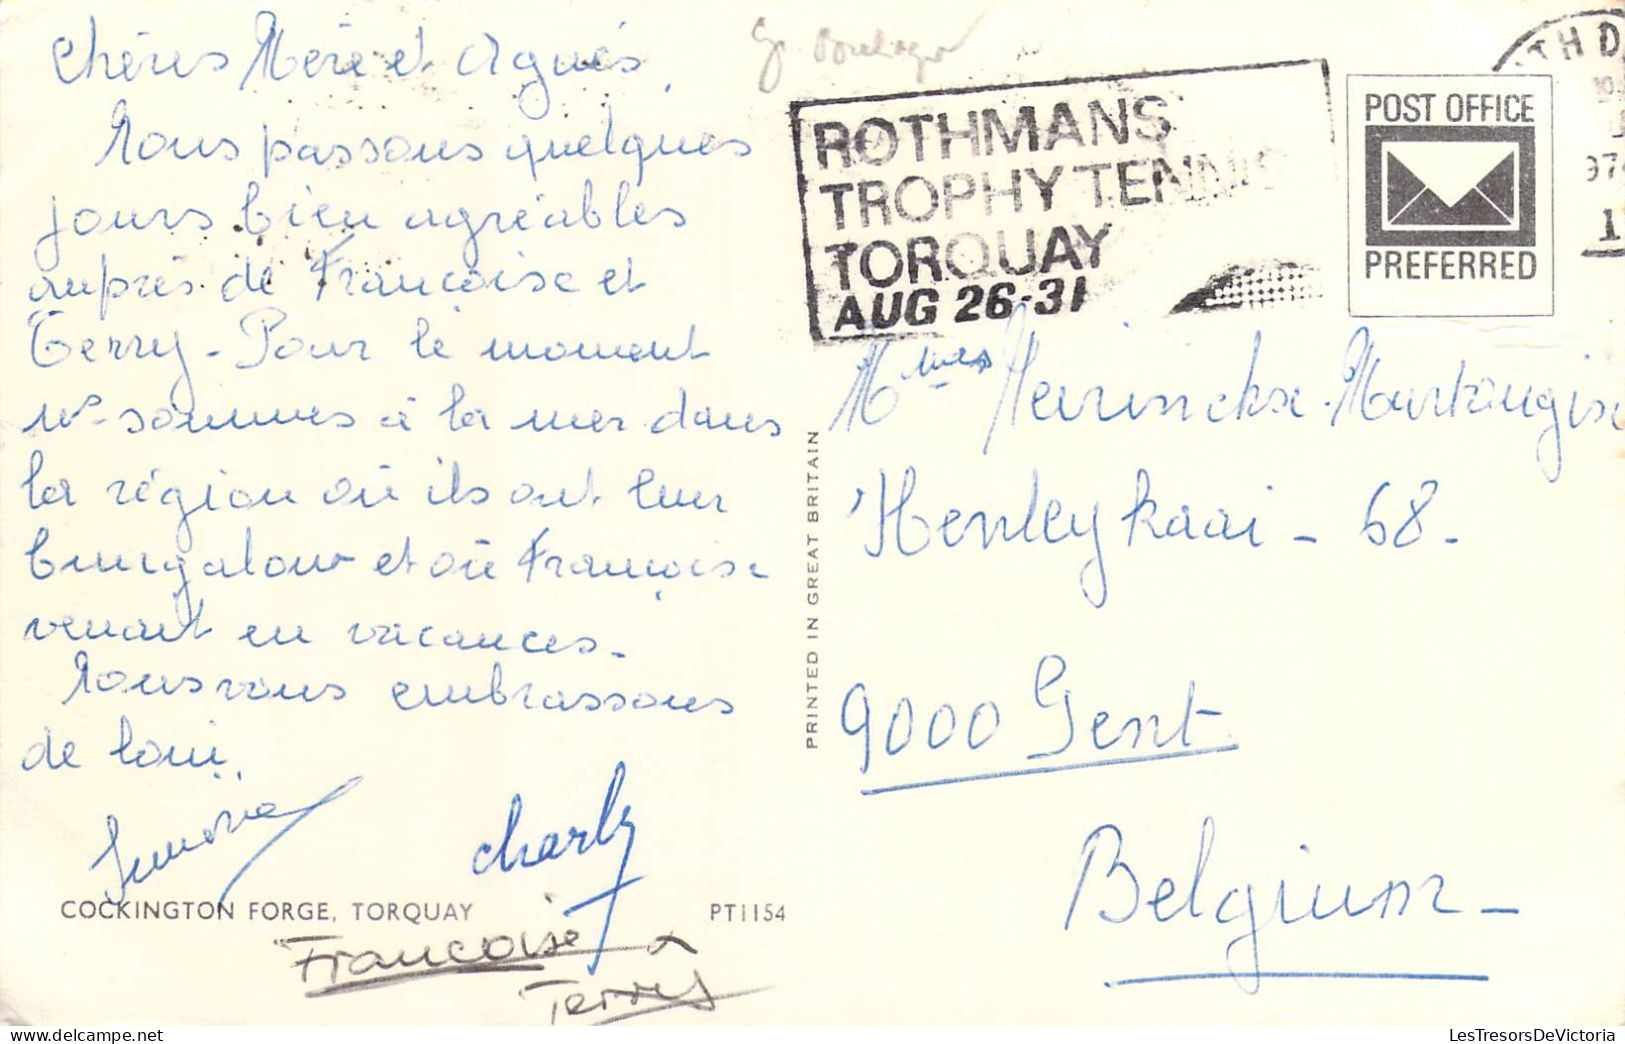 Chères Mère et Agnès,
Nous passons quelques
jours bien agréables
auprès de Françoise et
Terry - Pour le moment
ns sommes à la mer dans
la région où ils ont leur
bungalow et où Françoise
venait en vacances.
Nous vous embrassons
de loin.
Simone
Charly
COCKINGTON FORGE, TORQUAY
PT1154
Françoise &
Terry
PRINTED IN GREAT BRITAIN
ROTHMANS
TROPHY TENNIS
TORQUAY
AUG 26-31
POST OFFICE
PREFERRED
TH D
974
1
Mmes
Henleykaai - 68.
9000 Gent
Belgium -
LesTresorsDeVictoria.com